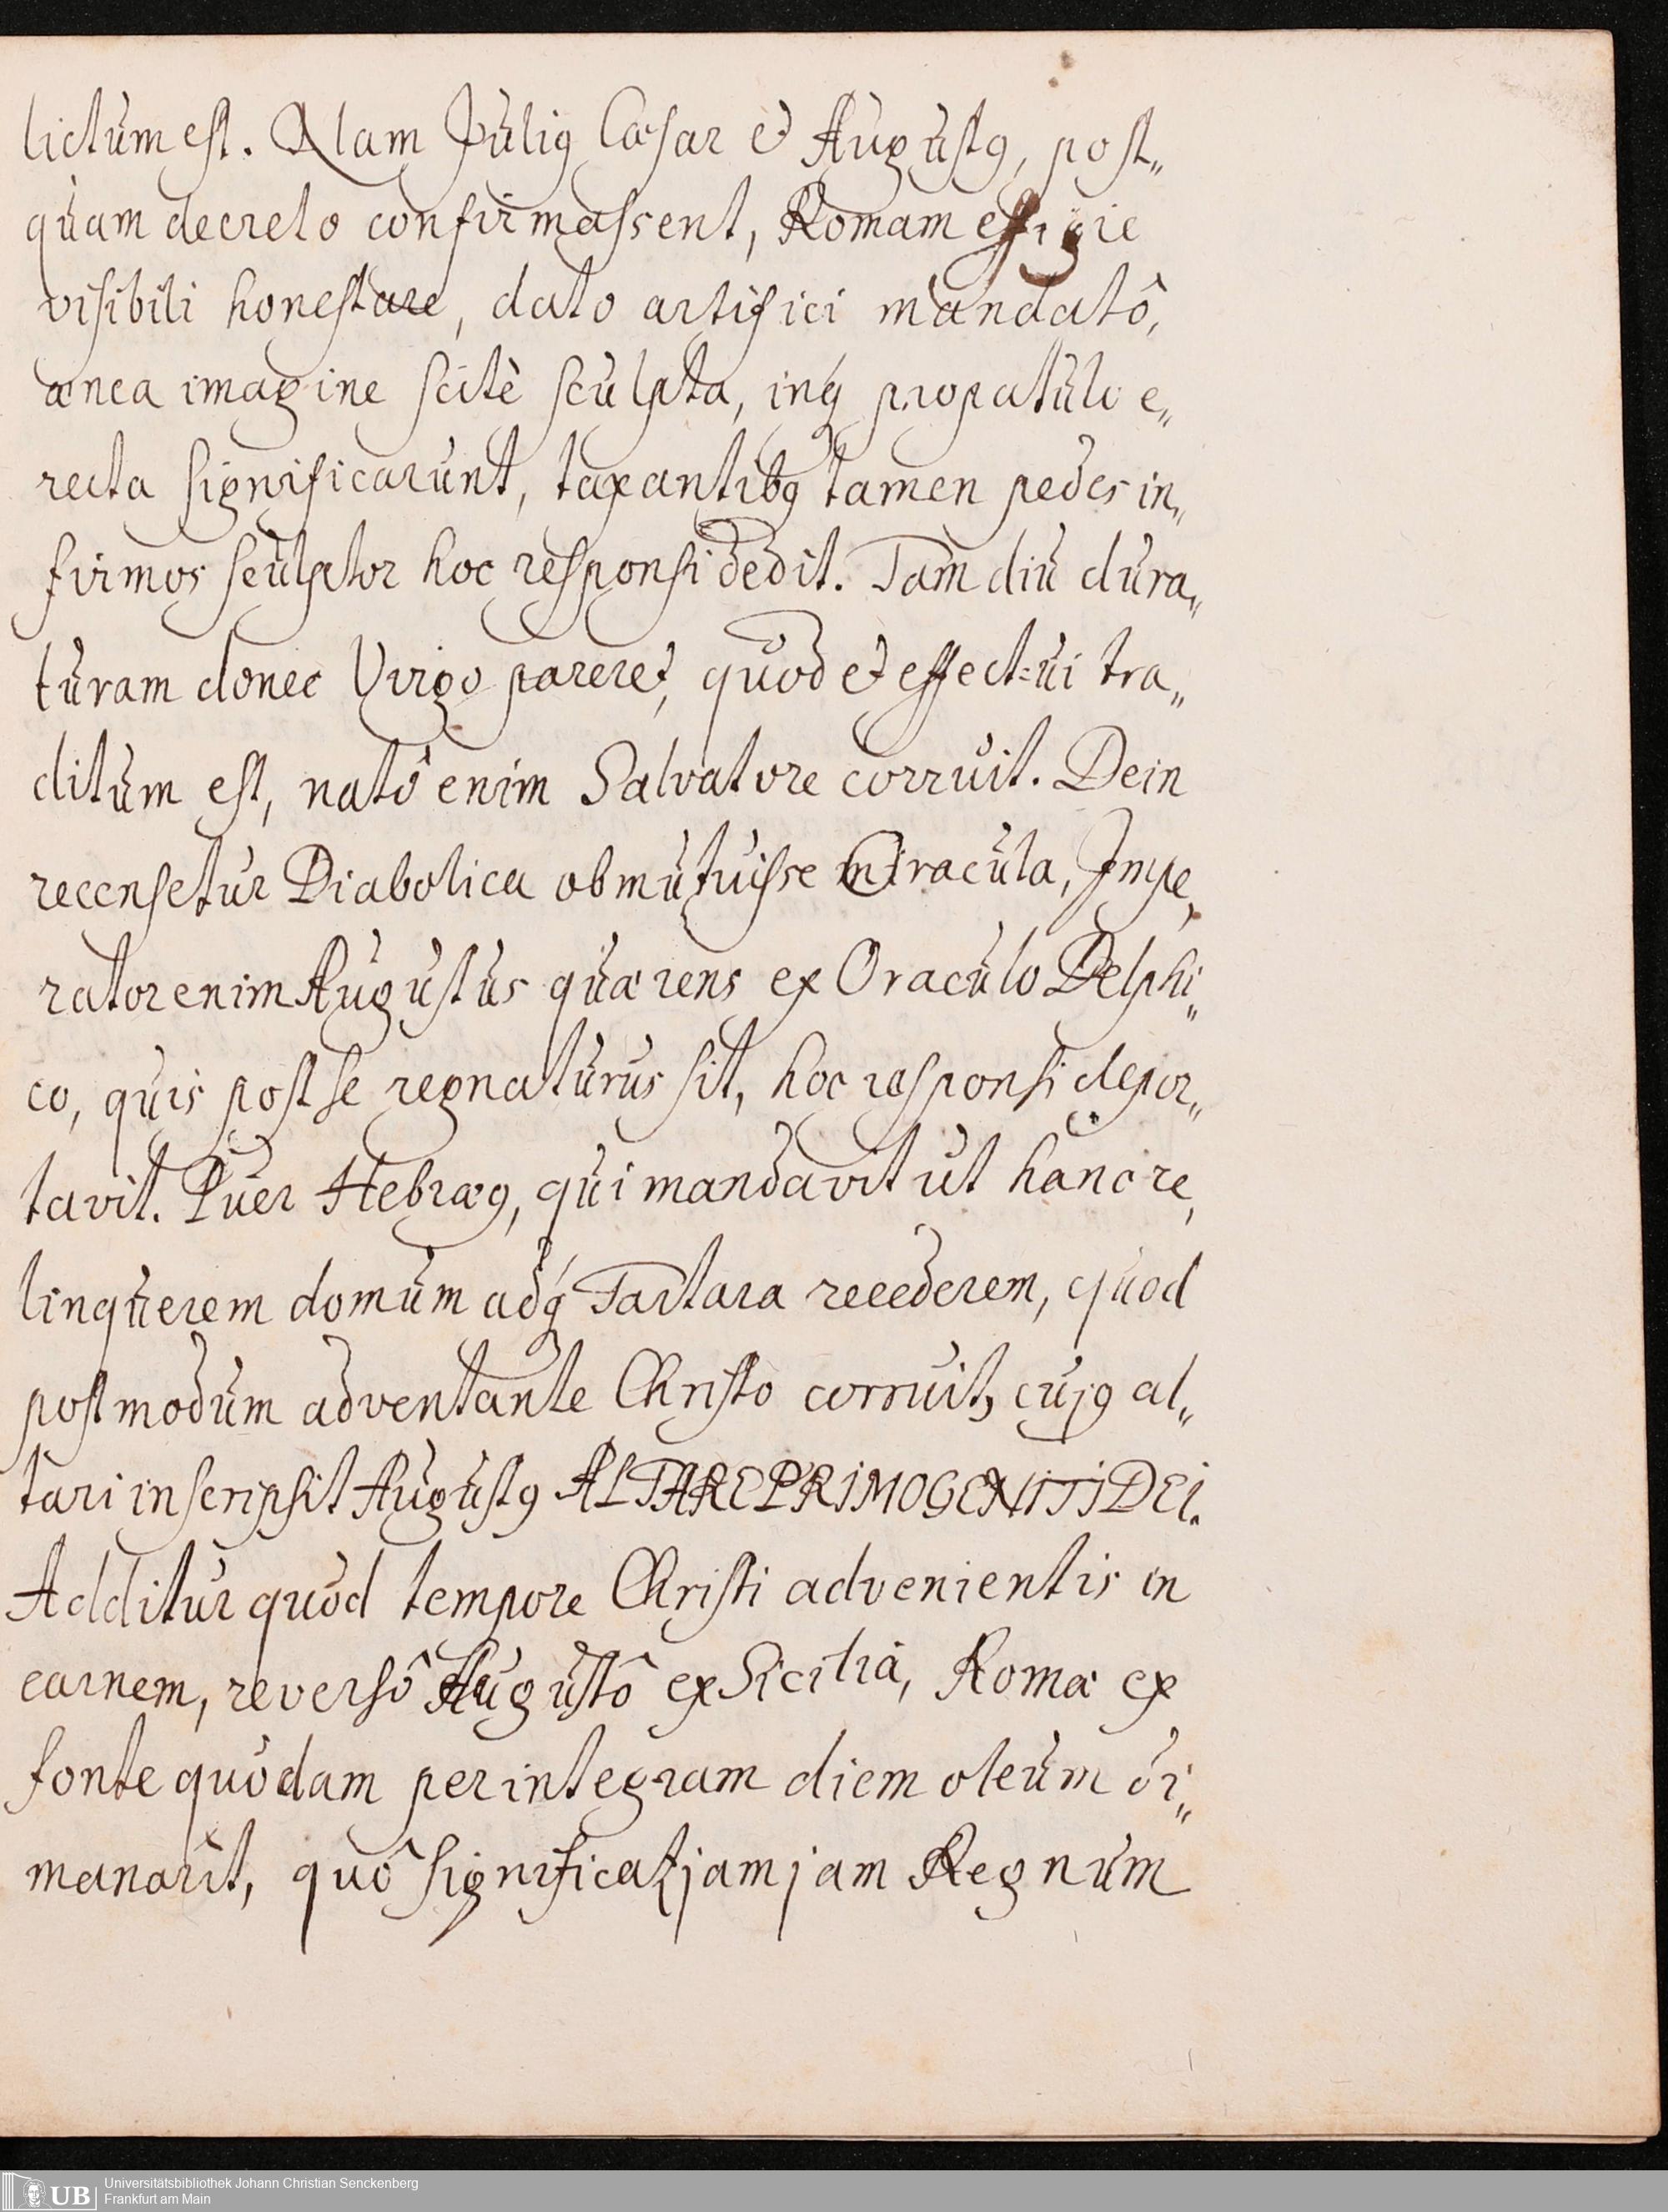 lictum est. Nam Julius Cæsar et Augustus, post„
quam decreto confirmassent, Romam effigie
visibili honestare, dato artifici mandatô,
ænea imagine scitè sculpta, inq propatulo e„
recta significarunt, taxantibus tamen pedes in„
firmos sculptor hoc responsi dedit. Tam diu dura„
turam donec Virgo pareret, quod et effect=ui tra„
ditum est, natô enim Salvatore corruit. Dein
recensetur Diabolica obmutuisse miracula, Impe„
rator enim Augustus quærens ex Oraculo Delphi„
co, quis post se regnaturus sit, hoc responsi depor„
tavit. Puer Hebræus, qui mandavit ut hanc re„
linquerem domum adq Tartara recederem, quod
postmodum adventante Christo corruit, cujus al„
tari inscripsit Augustus ALTARE PRIMOGENITI DEI.
Additur quod tempore Christi advenientis in
carnem, reversô Augustô ex Sicilià, Romæ ex
fonte quodam per integram diem oleum ori„
manarit, quô significat jam jam Regnum
Universitätsbibliothek Johann Christian Senckenberg
UB Frankfurt am Main